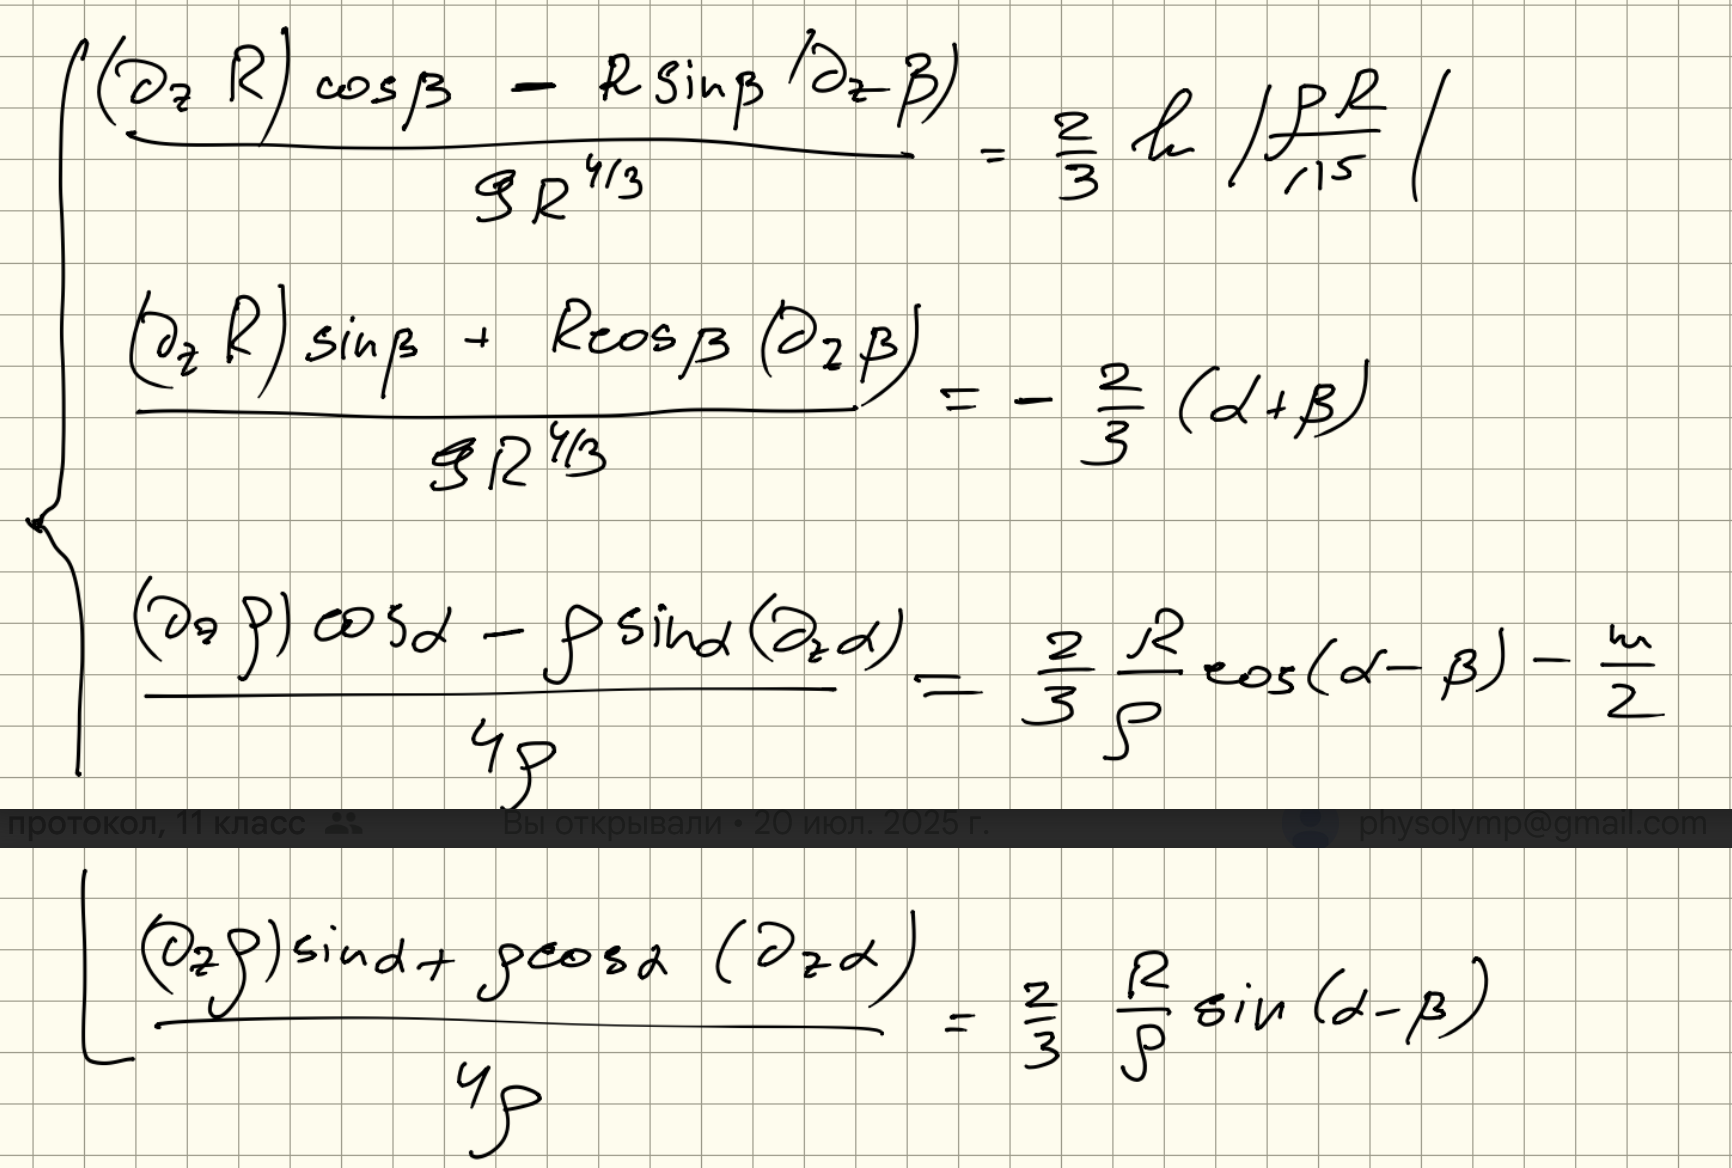 (∂z R) cosβ − R sinβ (∂z β) / 9R^4/3 = 2/3 ln |ρR / Λ^5|
(∂z R) sinβ + R cosβ (∂z β) / 9R^4/3 = − 2/3 (α+β)
(∂z ρ) cosα − ρ sinα (∂z α) / 4ρ = 2/3 R/ρ cos(α − β) − m/2
протокол, 11 класс Вы открывали • 20 июл. 2025 г. physolymp@gmail.com
(∂z ρ) sinα + ρ cosα (∂z α) / 4ρ = 2/3 R/ρ sin(α−β)